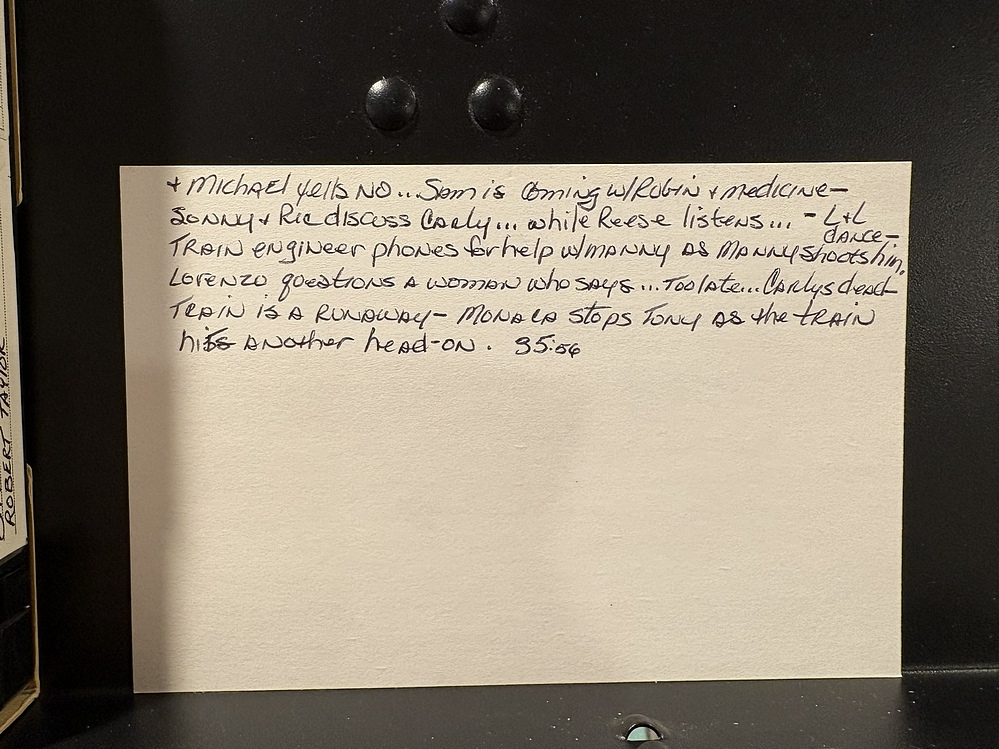 + Michael yells NO... Sam is coming w/Robin + medicine-
Sonny + Ric discuss Carly... while Reese listens... - L+L
dance-
Train engineer phones for help w/Manny as Manny shoots him.
Lorenzo questions a woman who says... Too late... Carlys dead
Train is a runaway- Monaca stops Tony as the train
hits another head-on. 35:56
ROBERT TAYLOR